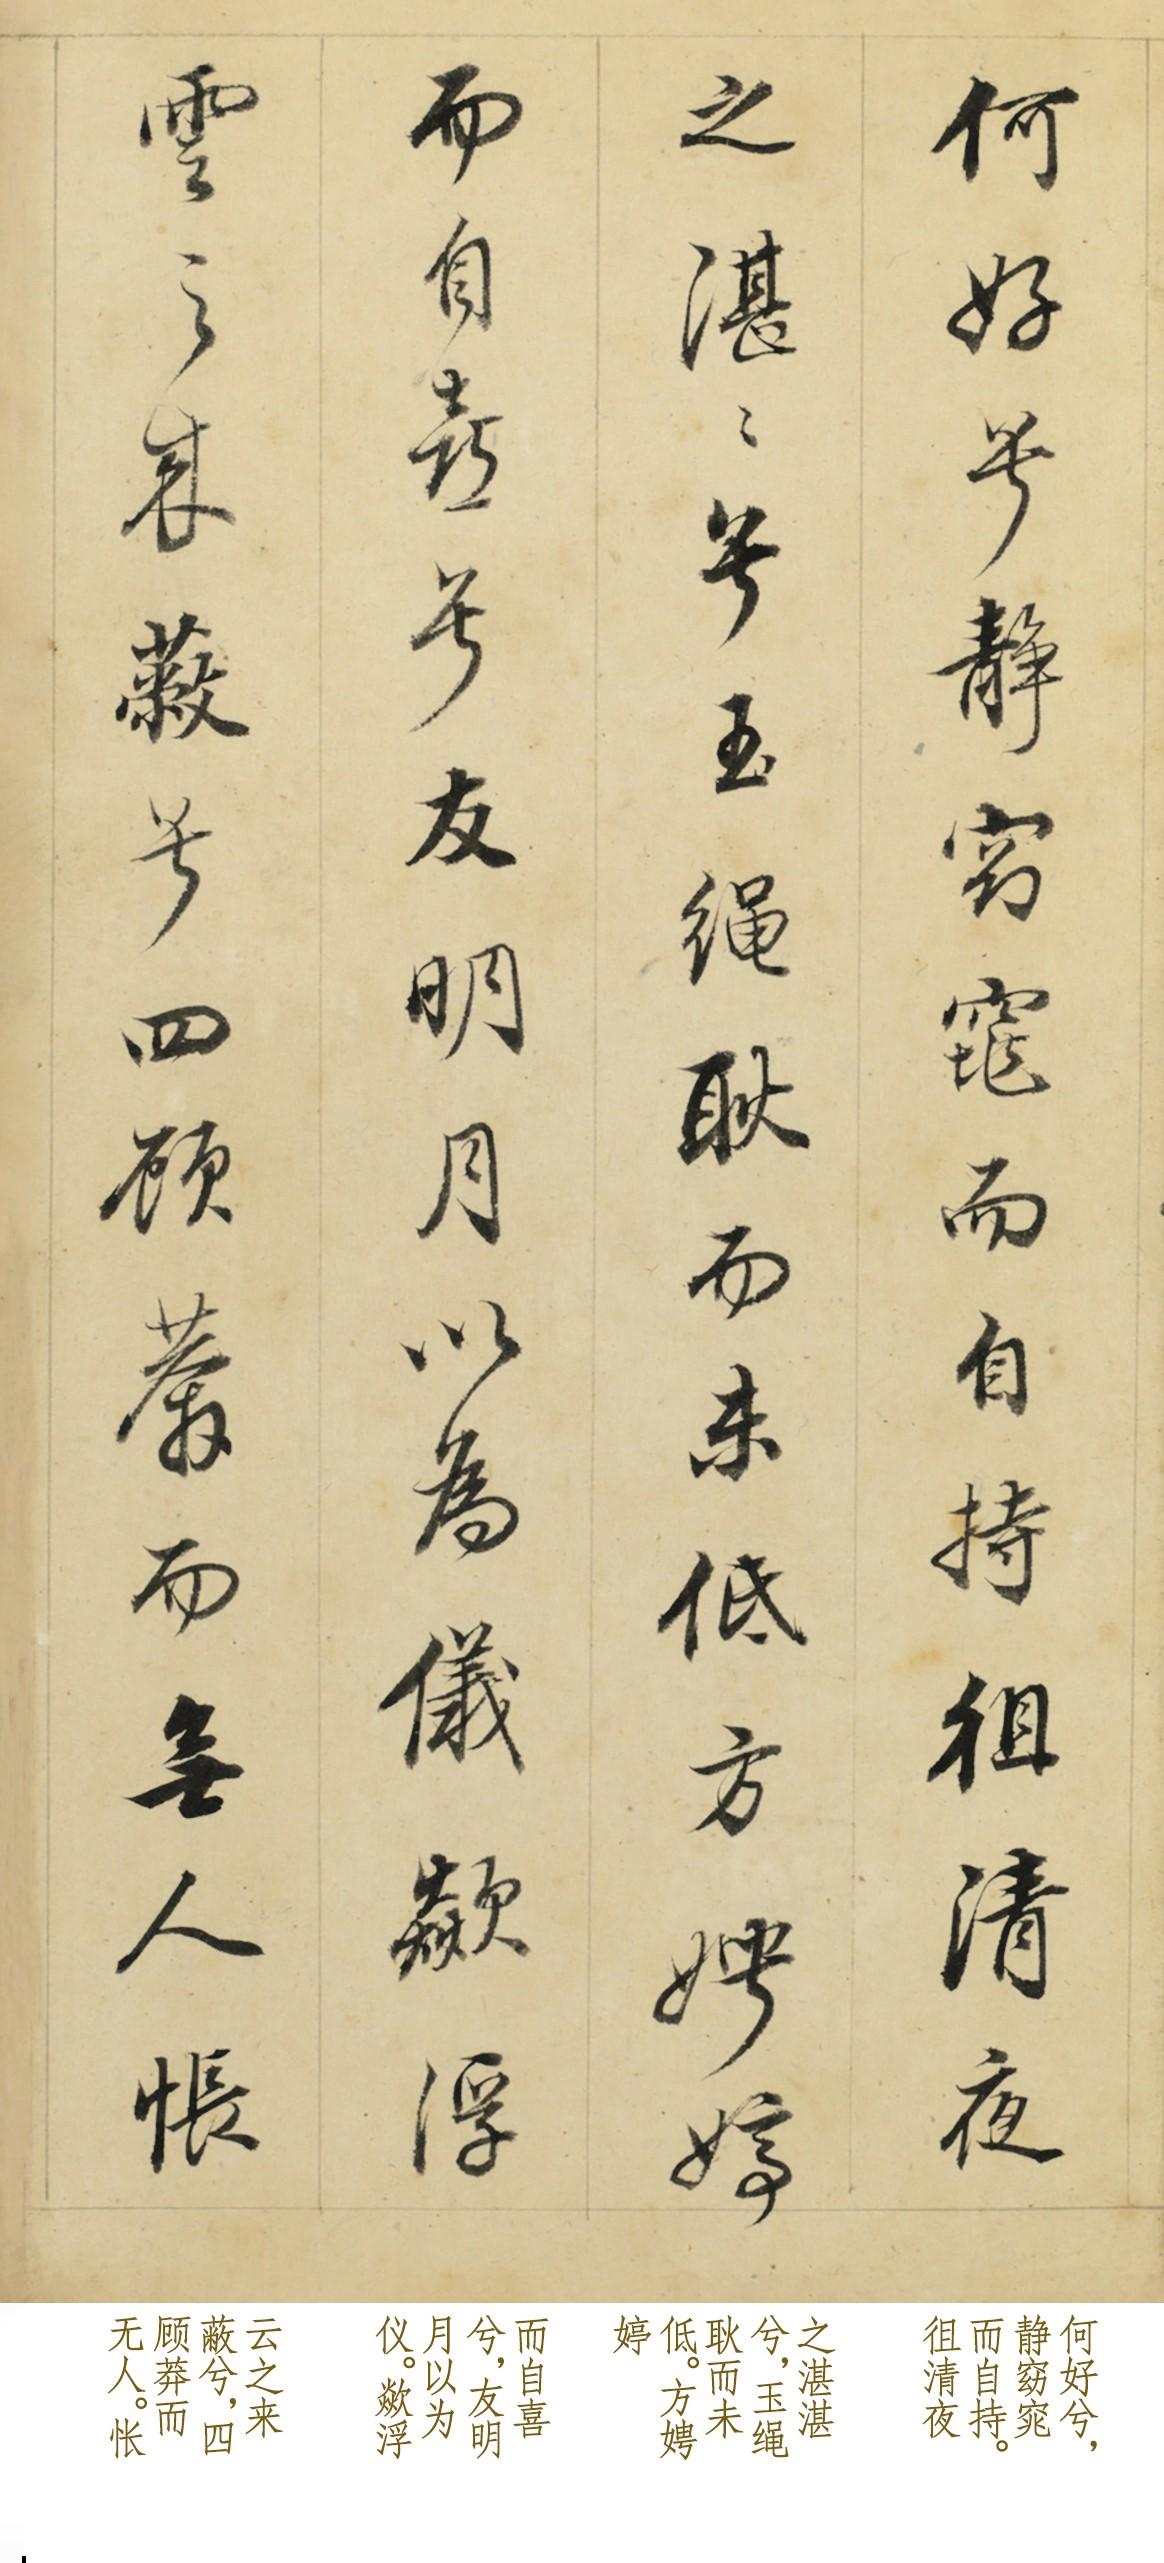 何好兮静窈窕而自持徂清夜
之湛〻兮玉绳耿而未低方娉婷
而自喜兮友明月以為儀歘浮
雲之来蔽兮四顾莽而無人悵
何好兮，
静窈窕
而自持。
徂清夜
之湛湛
兮，玉绳
耿而未
低。方娉
婷
而自喜
兮，友明
月以为
仪。歘浮
云之来
蔽兮，四
顾莽而
无人。怅